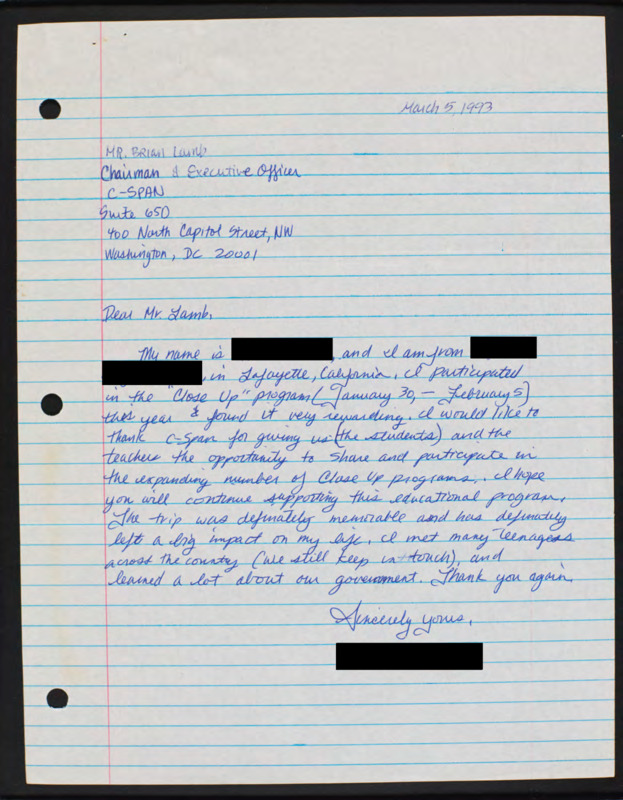 March 5, 1993
MR. BRIAN Lamb
Chairman & Executive Officer
C-SPAN
Suite 650
400 North Capitol Street, NW
Washington, DC 20001
Dear Mr. Lamb,
My name is , and I am from
, in Lafayette, California. I participated
in the "Close Up" program (January 30, - February 5)
this year & found it very rewarding. I would like to
thank C-Span for giving us (the students) and the
teachers the opportunity to share and participate in
the expanding number of Close Up programs. I hope
you will continue supporting this educational program.
The trip was definately memorable and has definately
left a big impact on my life. I met many teenagers
across the country (we still keep in touch), and
learned a lot about our government. Thank you again.
Sincerely yours,